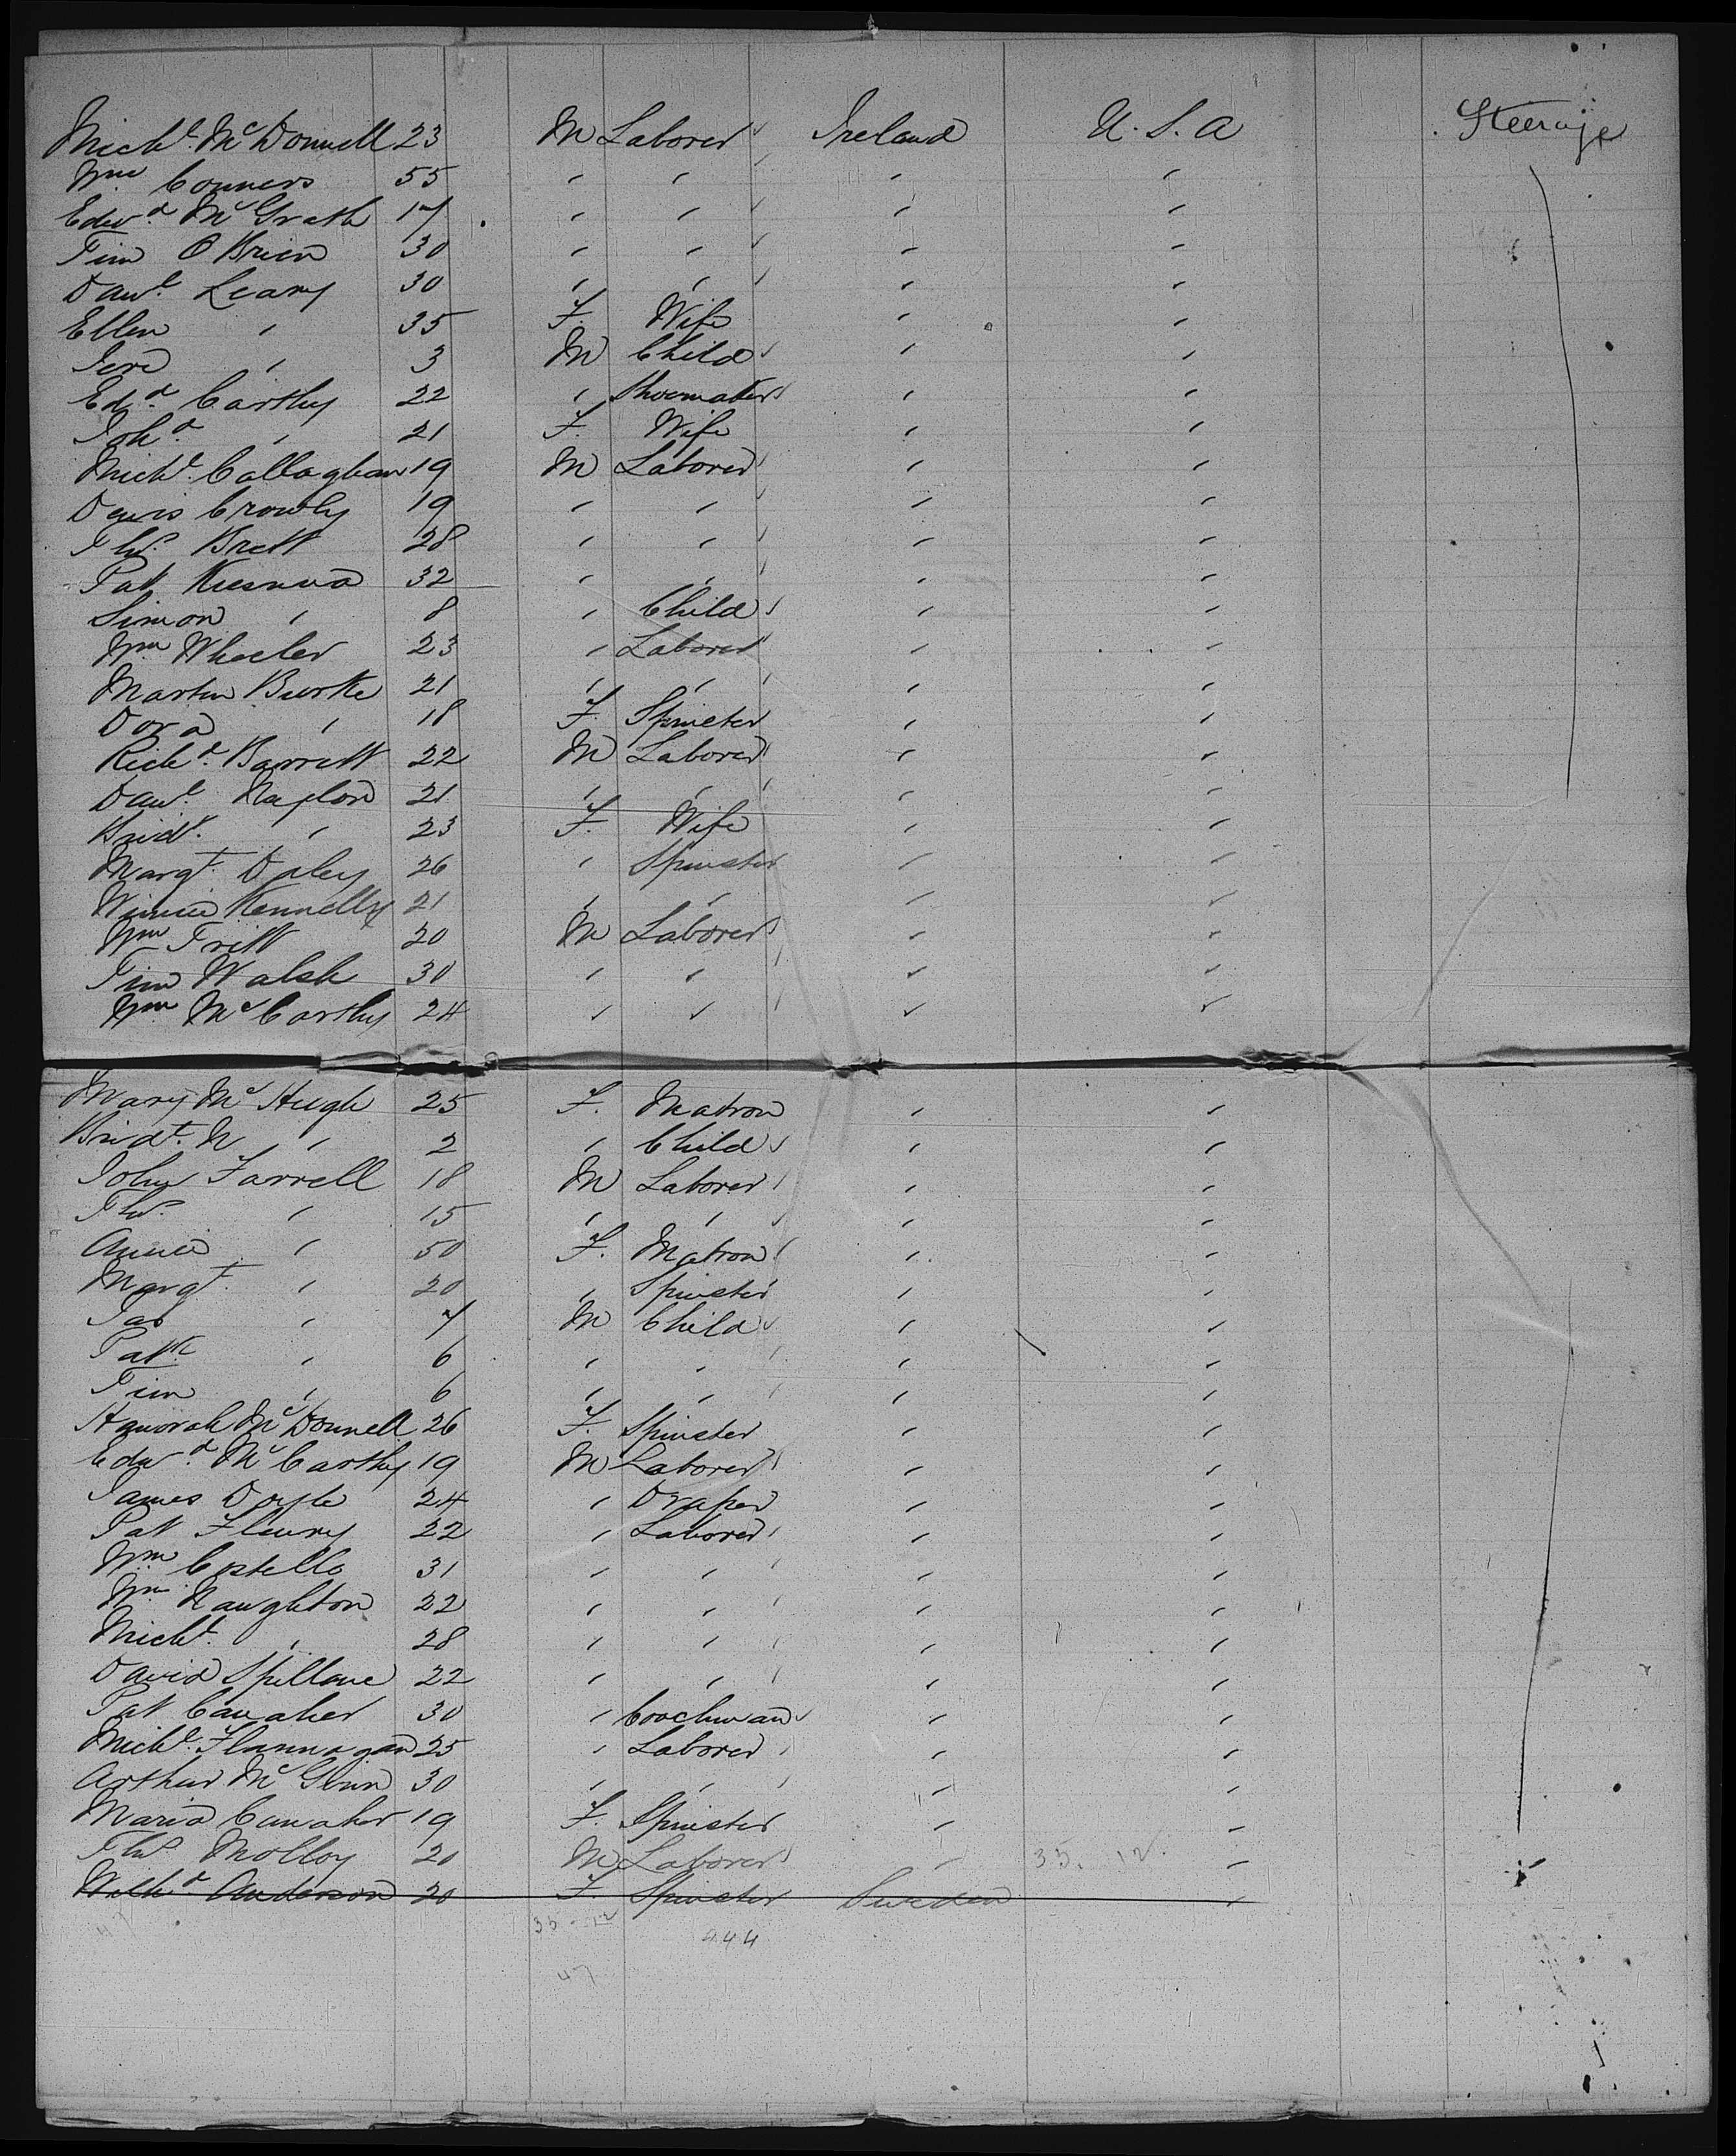 Michl. McDonnell 23 M Laborer Ireland U.S.A Steerage
Wm Conners 55 " " " "
Edwd. McGrath 17 " " " "
Tim O'Brien 30 " " " "
Danl. Leary 30 " " " "
Ellen " 35 F. Wife " "
Jere " 3 M Child " "
Edd. Carthy 22 " Shoemaker " "
Joha. " 21 F. Wife " "
Michl. Callaghan 19 M Laborer " "
Denis Crowly 19 " " " "
Thos. Brett 28 " " " "
Pat 32 " " " "
Simon " 8 " Child " "
Wm Wheeler 23 " Laborer " "
Martin Burke 21 " " " "
Dora " 18 F. Spinster " "
Richd. Barrett 22 M Laborer " "
Danl. 21 " " " "
Bridt. " 23 F. Wife " "
Margt. Daley 26 " Spinster " "
Winnie Kennelly 21 " " " "
Wm Tritt 20 M Laborer " "
Tim Walsh 30 " " " "
Wm McCarthy 24 " " " "
Mary McHugh 25 F. Matron " "
Bridt. N " 2 " Child " "
John Farrell 18 M Laborer " "
Thos. " 15 " " " "
Annie " 50 F. Matron " "
Margt. " 20 " Spinster " "
Jas " 7 M Child " "
Patk. " 6 " " " "
Tim " 6 " " " "
Hanorah McDonnell 26 F. Spinster " "
Edwd. McCarthy 19 M Laborer " "
James Doyle 24 " Draper " "
Pat Fleury 22 " Laborer " "
Wm Costello 31 " " " "
Wm Naughton 22 " " " "
Michl. " 28 " " " "
David Spillane 22 " " " "
Pat Canaher 30 " Coachman " "
Michl. Flannagan 25 " Laborer " "
Arthur McGlinn 30 " " " "
Maria Canaher 19 F. Spinster " "
Thos Molloy 20 M Laborer " 35. 12. "
Wilha Anderson 20 F. Spinster Sweden "
47 35-12 444
47